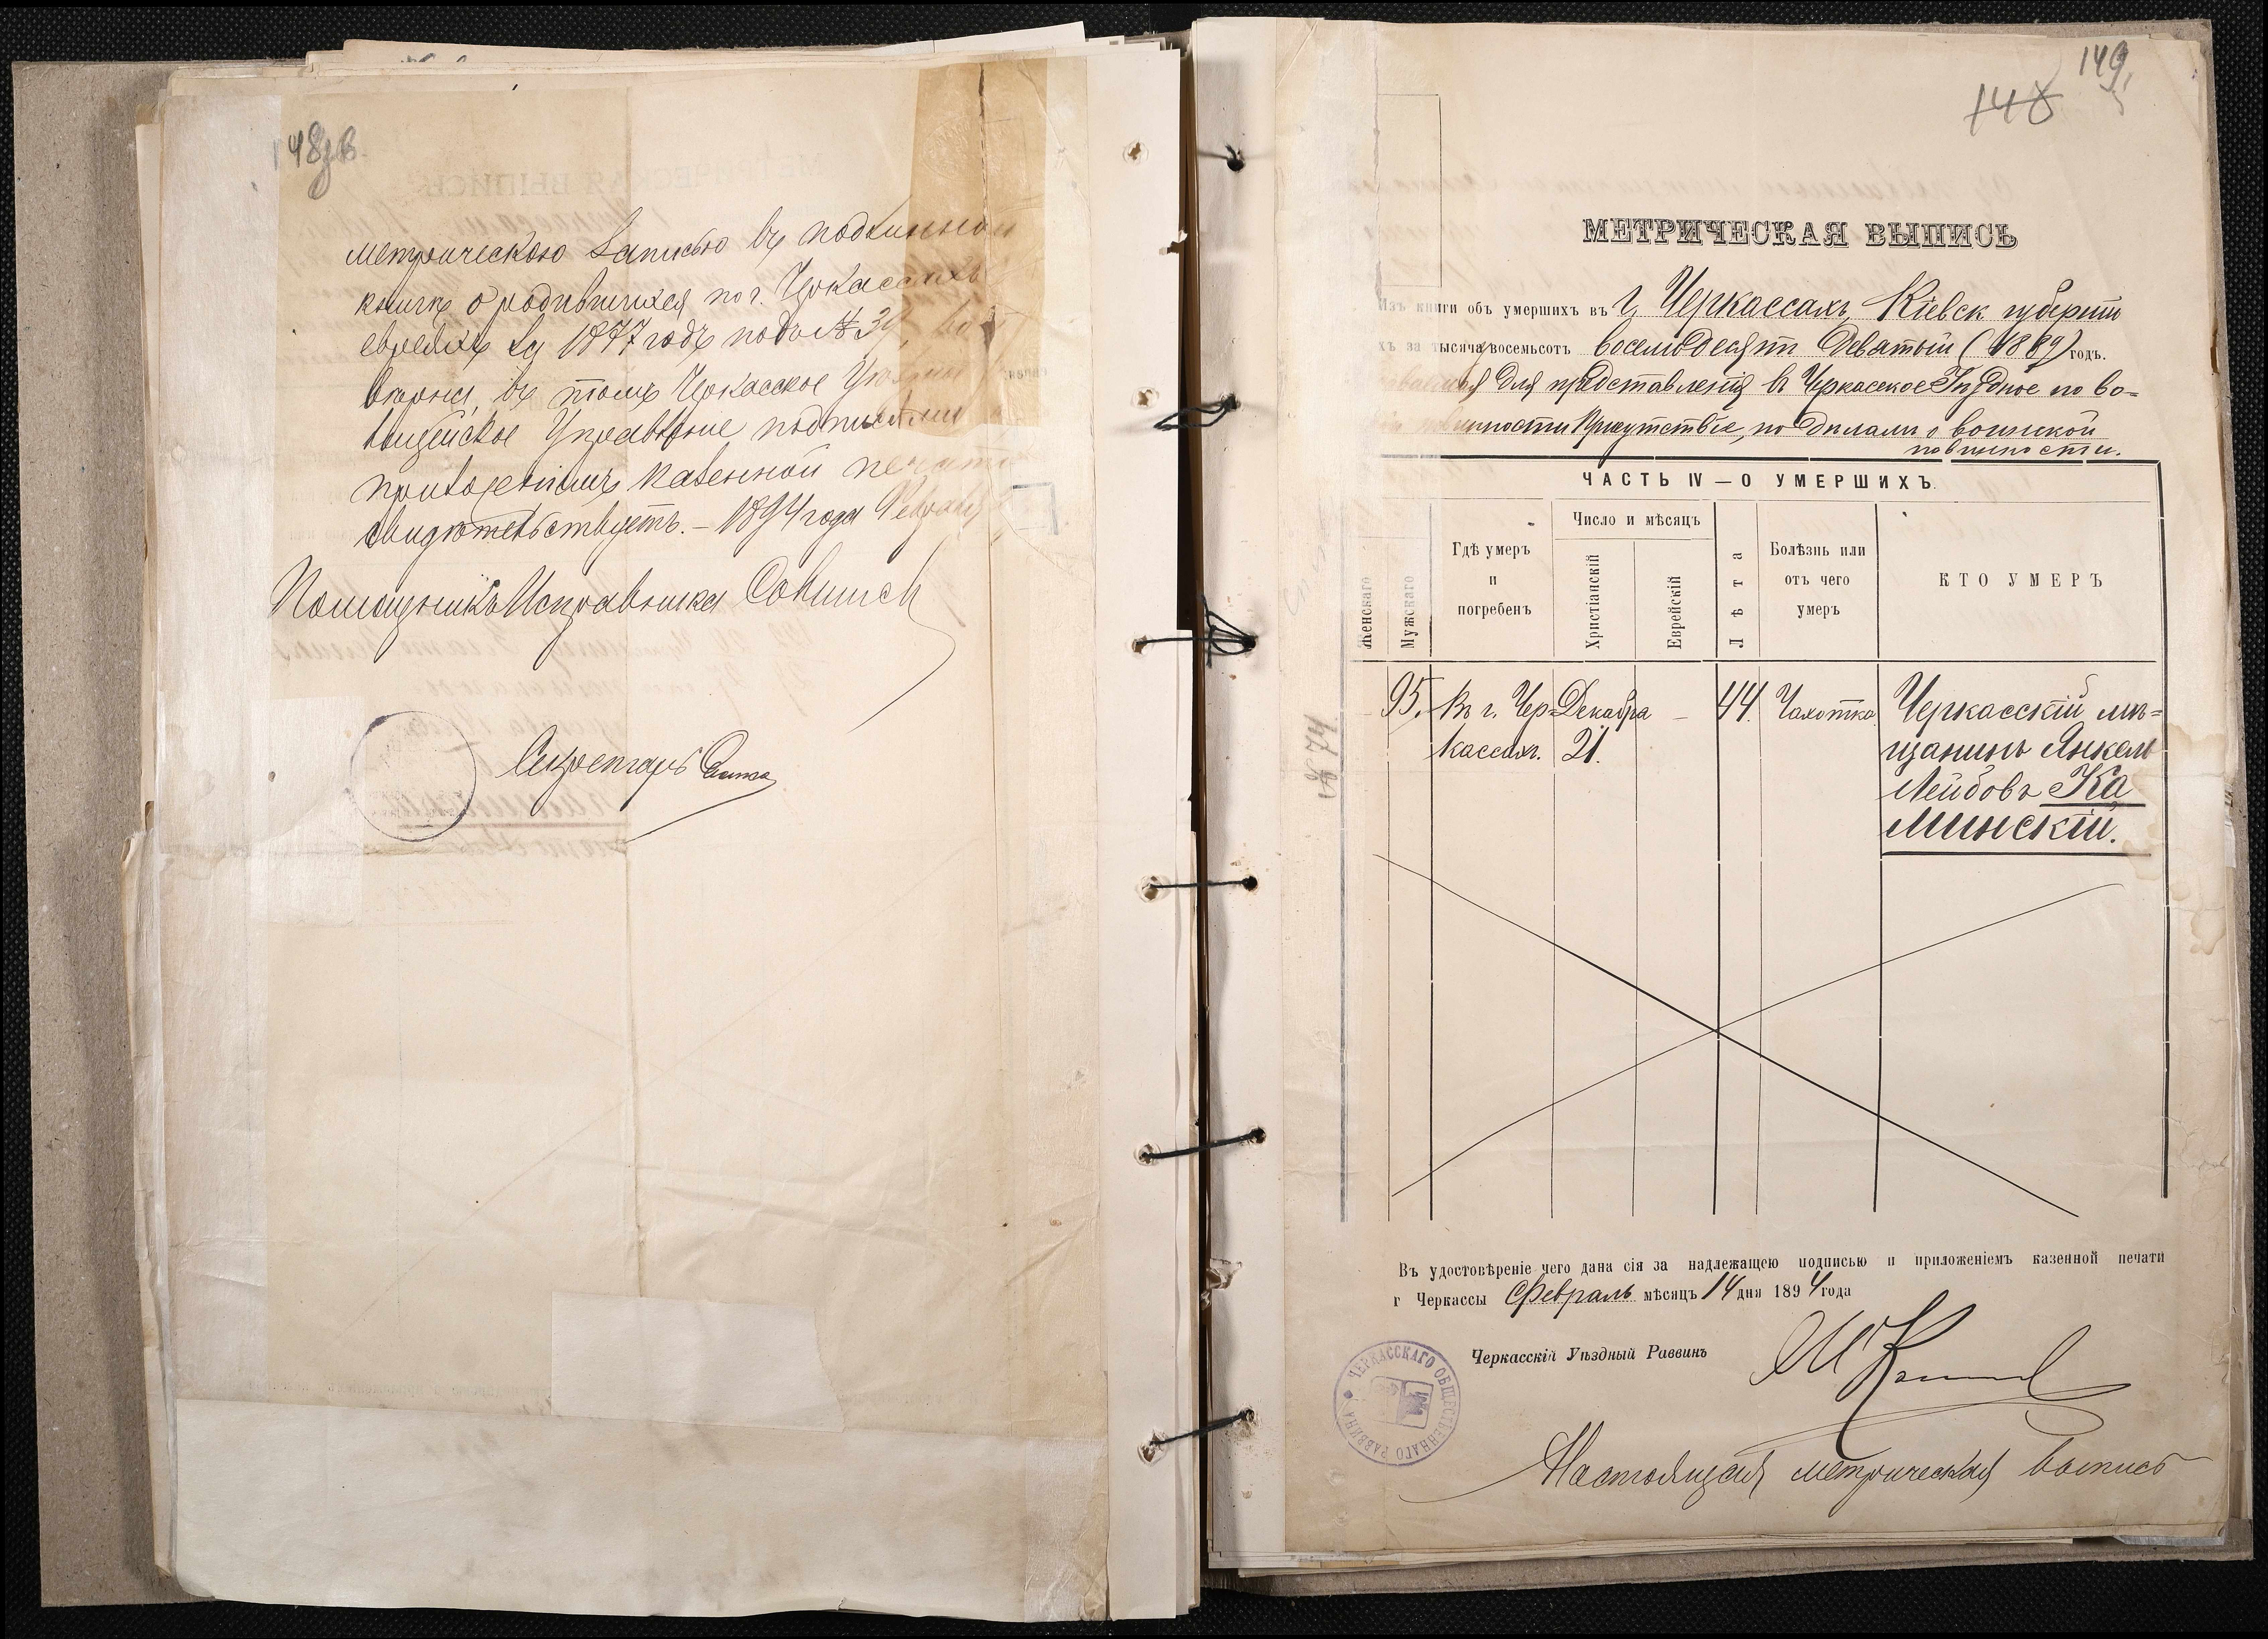 148об.
метрическою записью въ подлинной
книгѣ о родившихся по г. Черкассахъ
евреяхъ за 1877 годъ подъ № 39,
вѣрна, въ томъ Черкасское Уѣздное
Полицейское Управленіе подписями
приложеніемъ казенной печати
свидѣтельствуетъ. – 1894 года Февраля
Помощникъ Исправника
Секретарь
149
148
МЕТРИЧЕСКАЯ ВЫПИСЬ
Изъ книги объ умершихъ въ г. Черкассахъ, Кіевск губерніи
хъ за тысяча восемьсотъ восемьдесятъ девятый (1889) годъ.
для представленія въ Черкасское Уѣздное по во=
повинности Присутствіе, по дѣламъ о воинской
повинности.
ЧАСТЬ IV — О УМЕРШИХЪ.
Женскаго
Мужскаго
Гдѣ умеръ и погребенъ
Число и мѣсяцъ
Христіанскій
Еврейскій
Лѣта
Болѣзнь или отъ чего умеръ
КТО УМЕРЪ
95. Въ г. Чер= Декабря – 44. Чахотка. Черкасскій мѣ=
кассахъ. 21. щанинъ Янкель
Лейбовъ Ка
минскій.
№ 74
Въ удостовѣреніе чего дана сія за надлежащею подписью и приложеніемъ казенной печати
г Черкассы Февраль мѣсяцъ 14 дня 1894 года
Черкасскій Уѣздный Раввинъ
ЧЕРКАССКАГО ОБЩЕСТВЕННАГО РАВВИНА
Настоящая метрическая выпись